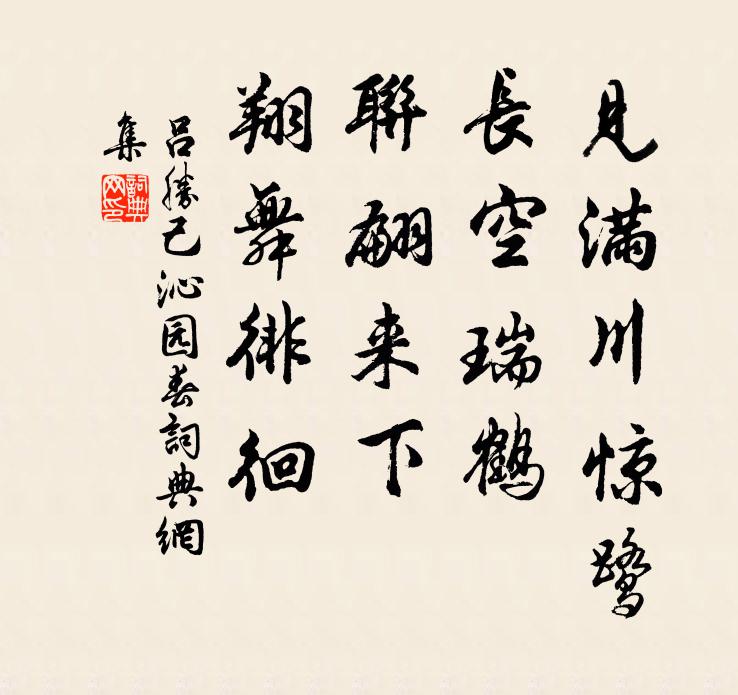 見满川惊鹭
長空瑞鹤
聯翩来下
翔舞徘徊
吕勝己沁园春詞典網
集
詞典網印